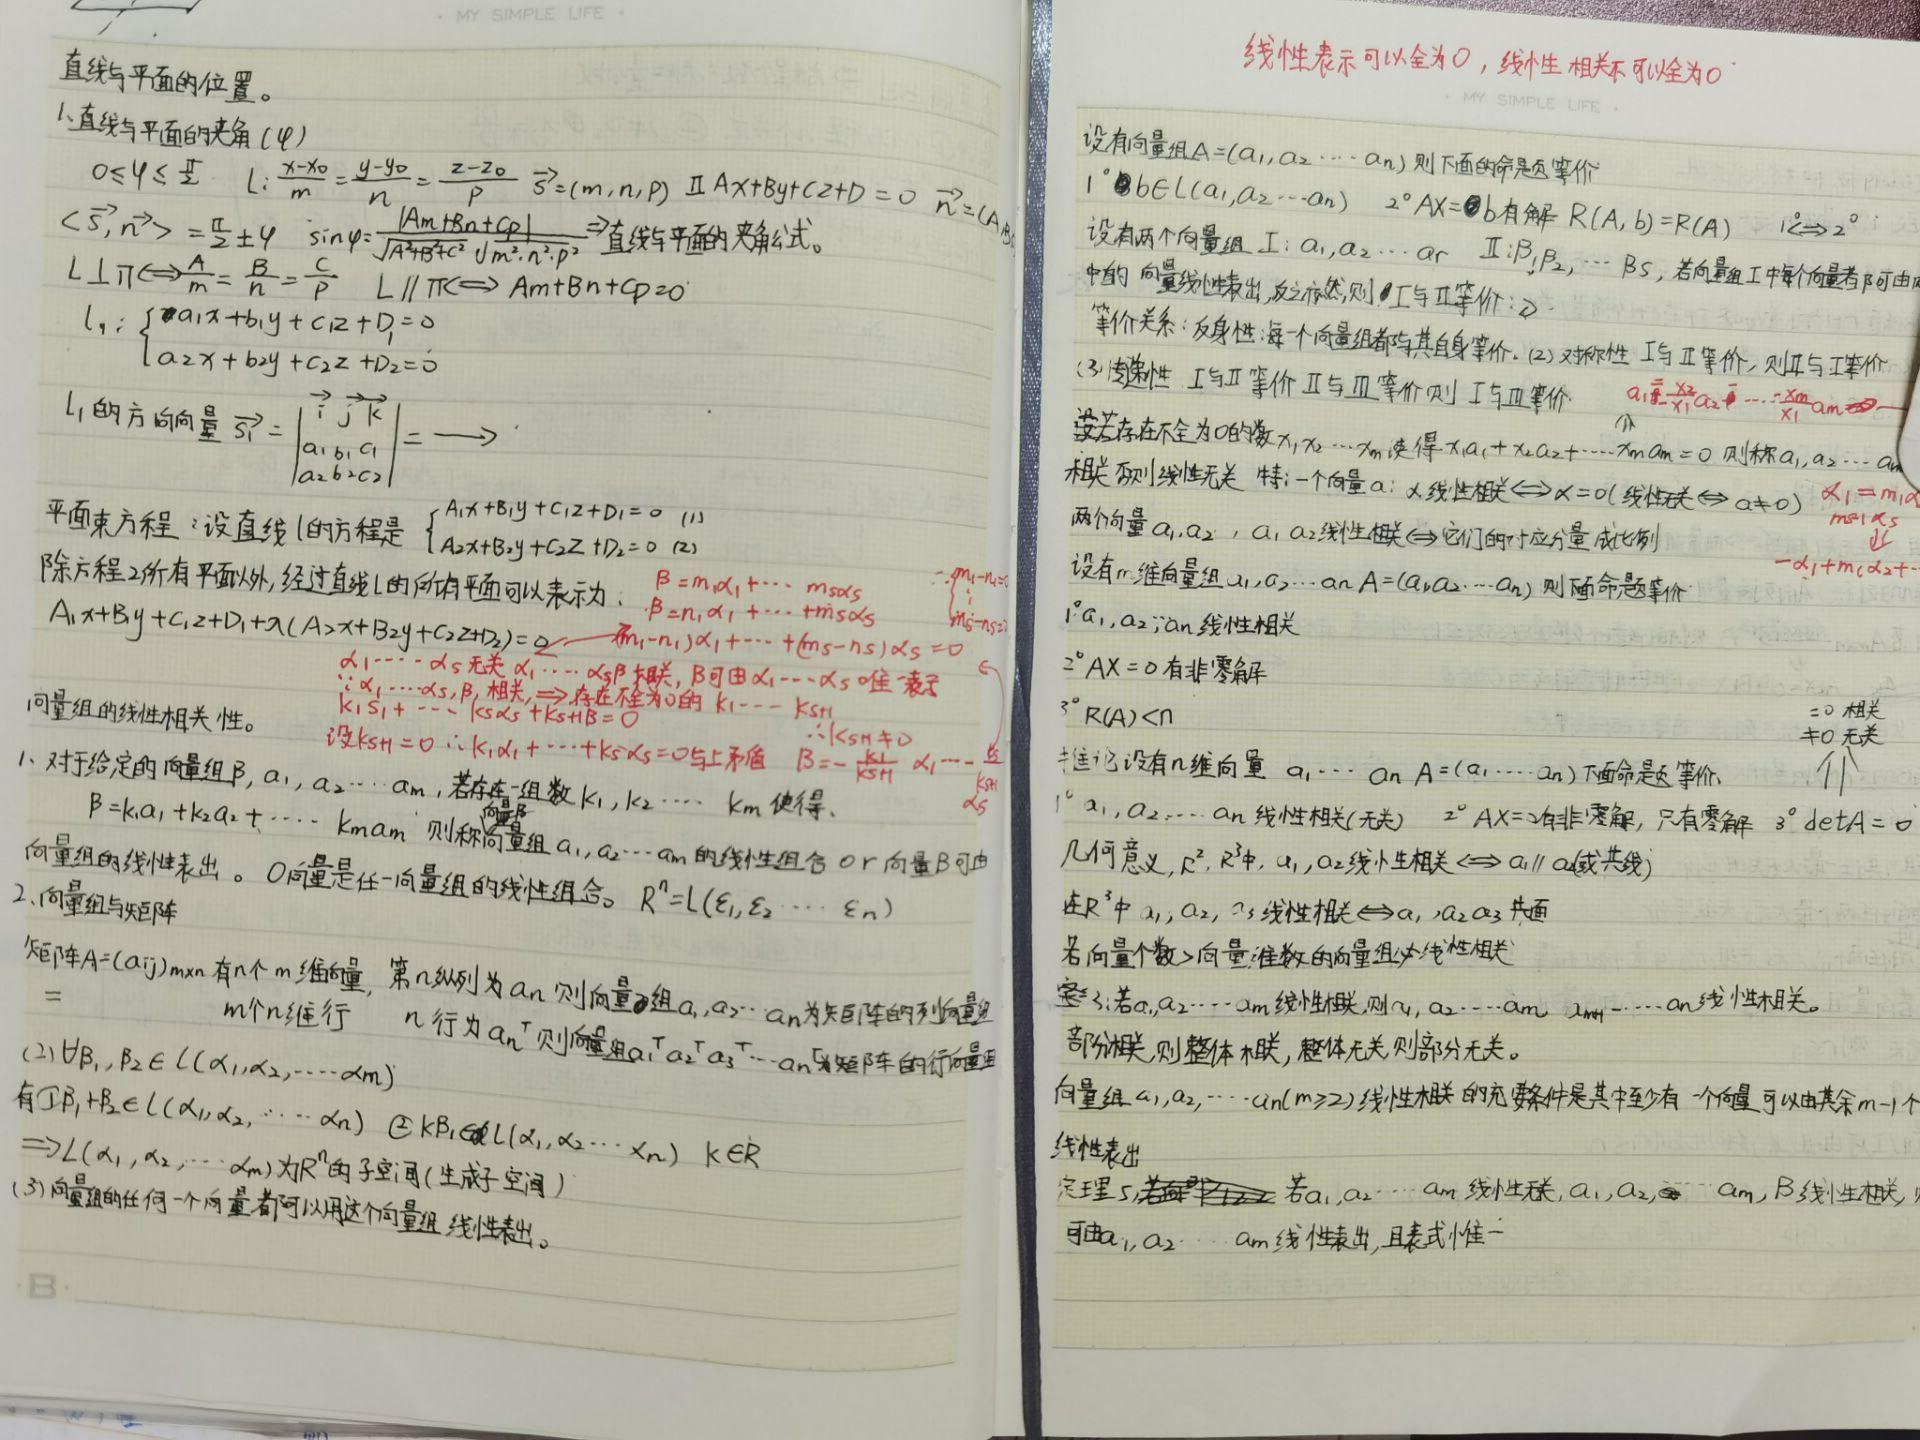 · MY SIMPLE LIFE ·
直线与平面的位置。
1、直线与平面的夹角(φ)
0≤φ≤π/2 L: (x-x0)/m = (y-y0)/n = (z-z0)/p s→=(m,n,p) Π Ax+By+Cz+D=0 n→=(A,B,
<s→,n→>=π/2±φ sinφ=|Am+Bn+Cp|/(√A²+B²+C² √m²·n²·p²) ⇒直线与平面的夹角公式。
L⊥π⇔A/m=B/n=C/p L∥π⇔Am+Bn+Cp=0
l1: { a1x+b1y+c1z+D1=0
a2x+b2y+c2z+D2=0
l1的方向向量 s1→ = | i→ j→ k→
a1 b1 c1
a2 b2 c2 | = →
平面束方程:设直线l的方程是 { A1x+B1y+C1z+D1=0 (1)
A2x+B2y+C2z+D2=0 (2)
除方程2所有平面以外,经过直线L的所有平面可以表示为:
A1x+B1y+C1z+D1+λ(A2x+B2y+C2z+D2)=0
β=m1α1+··· msαs
β=n1α1+···+msαs
∴{m1-n1=0
⋮
ms-ns=0
(m1-n1)α1+···+(ms-ns)αs=0
α1····αs无关 α1····αsβ相关,β可由α1---αs唯一表示
∵α1····αs,β,相关,⇒存在不全为0的 k1--- ks+1
k1s1+---ksαs+ks+1β=0
∴ks+1≠0
设ks+1=0 ∴k1α1+···+ksαs=0与上矛盾 β=-k1/ks+1 α1---ks/ks+1 αs
向量组的线性相关性。
1、对于给定的向量组β,a1,a2····am,若存在一组数k1,k2···· km使得、
β=k1a1+k2a2+···· kmam 则称向量β向量组a1,a2···am的线性组合or向量β可由
向量组的线性表出。0向量是任一向量组的线性组合。R^n=L(ε1,ε2····εn)
2、向量组与矩阵
矩阵A=(aij)m×n有n个m维向量,第n纵列为an则向量组a1,a2···an为矩阵的列向量组
= m个n维行 n行为an^T则向量组a1^T a2^T a3^T···an^T为矩阵的行向量组
(2)∀β1,β2∈L(α1,α2,····αm)
有①β1+β2∈L(α1,α2,····αn) ②kβ1∈L(α1,α2···αn) k∈R
⇒L(α1,α2,····αm)为R^n的子空间(生成子空间)
(3)向量组的任何一个向量都可以用这个向量组线性表出。
B
线性表示可以全为0,线性相关不可以全为0
· MY SIMPLE LIFE ·
设有向量组A=(a1,a2····an)则下面的命题等价
1° b∈L(a1,a2···an) 2° AX=b有解 R(A,b)=R(A) 1°⇔2°
设有两个向量组 I:a1,a2···ar II:β1β2,···βs,若向量组I中每个向量都可由
中的向量线性表出,反之亦然,则I与II等价:
等价关系:反身性:每一个向量组都与其自身等价.(2)对称性 I与II等价,则II与I等价
(3)传递性 I与II等价 II与III等价则 I与III等价
a1=-x2/x1 a2-···-xm/x1 am
若存在不全为0的数x1x2···xm使得x1a1+x2a2+····xmam=0则称a1,a2···am
相关否则线性无关 特:一个向量a:α线性相关⇔α=0(线性无关⇔a≠0)
α1=m1α
ms-1αs
⇓
-α1+m1α2+··
两个向量a1,a2,a1a2线性相关⇔它们的对应分量成比例
设有m维向量组a1,a2···an A=(a1,a2···an)则下面命题等价
1°a1,a2,an线性相关
2° AX=0有非零解
3° R(A)<n
=0 相关
≠0 无关
推论设有n维向量 a1····an A=(a1····an)下面命题等价、
1° a1,a2····an线性相关(无关) 2° AX=0有非零解,只有零解 3° detA=0
几何意义,R²,R³中,a1,a2线性相关⇔a1∥a2(或共线)
在R³中 a1,a2,a3线性相关⇔a1,a2a3共面
若向量个数>向量维数的向量组必线性相关
定3:若a1a2····am线性相关,则a1,a2····am am+1-····an线性相关。
部分相关,则整体相关,整体无关,则部分无关。
向量组a1,a2,····an(m≥2)线性相关的充要条件是其中至少有一个向量可以由其余m-1个
线性表出
定理5, 若a1,a2····am线性无关,a1,a2, am,β线性相关,
可由a1,a2····am线性表出,且表式惟一